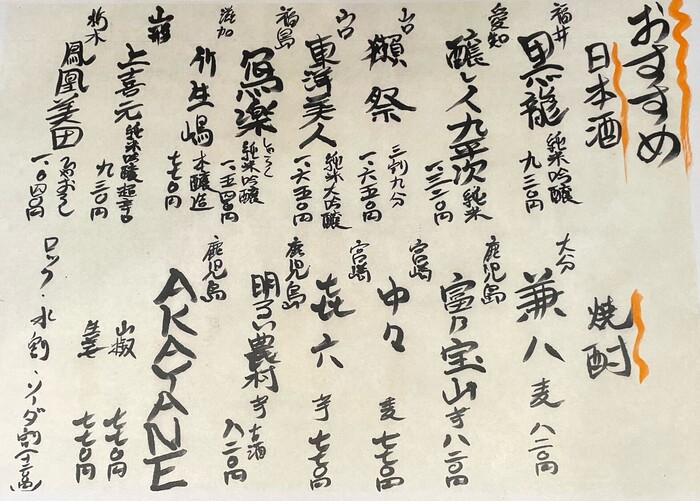 おすすめ
日本酒
福井
黒龍 純米吟醸
九三〇円
愛知
醸し人九平次 純米
山口
獺祭 三割九分
一、六五〇円
山口
東洋美人 純米大吟醸
一、六五〇円
福島
冩楽 しゃらく 純米吟醸
一、五四〇円
滋賀
竹生嶋 本醸造
七七〇円
山形
上喜元 純米吟醸 超辛口
九三〇円
栃木
鳳凰美田
一、〇四〇円
焼酎
大分
兼八 麦 八二〇円
鹿児島
富乃宝山 芋 八二〇円
宮崎
中々 麦 七七〇円
宮崎
㐂六 芋 七七〇円
鹿児島
明るい農村 芋 古酒
八二〇円
鹿児島
AKAYANE
山椒 七七〇円
生姜 七七〇円
ロック・水割・ソーダ割